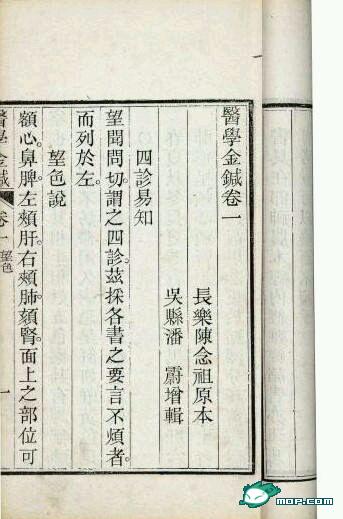 醫學金鍼卷一
長樂陳念祖原本
吳縣潘霨增輯
四診易知
望聞問切謂之四診茲採各書之要言不煩者。
而列於左。
望色說
額心。鼻脾。左頰肝。右頰肺。頦腎。面上之部位可
醫學金鍼 卷一 望色 一
mop.com